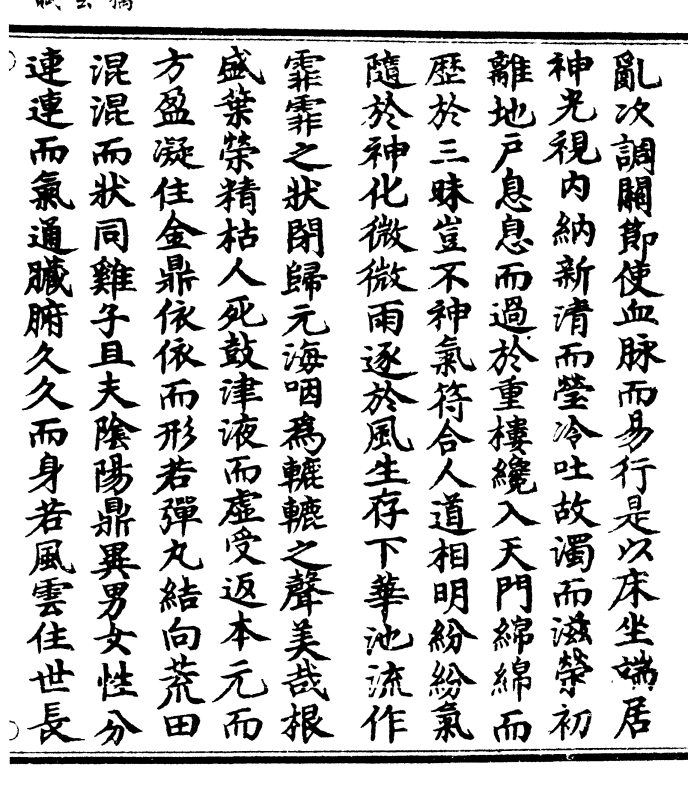 亂次調關節使血脉而易行是以床坐端居
神光視内納新清而瑩冷吐故濁而滋榮初
離地戸息息而過於重樓纔入天門綿綿而
歴於三昧豈不神氣符合人道相明紛紛氣
隨於神化微微雨逐於風生存下華池流作
霏霏之状閉歸元海咽爲轆轆之聲美哉根
盛葉榮精枯人死鼓津液而虚受返本元而
方盈凝住金鼎依依而形若彈丸結向荒田
混混而状同雞子且夫陰陽鼎異男女性分
連連而氣通臓腑久久而身若風雲住世長